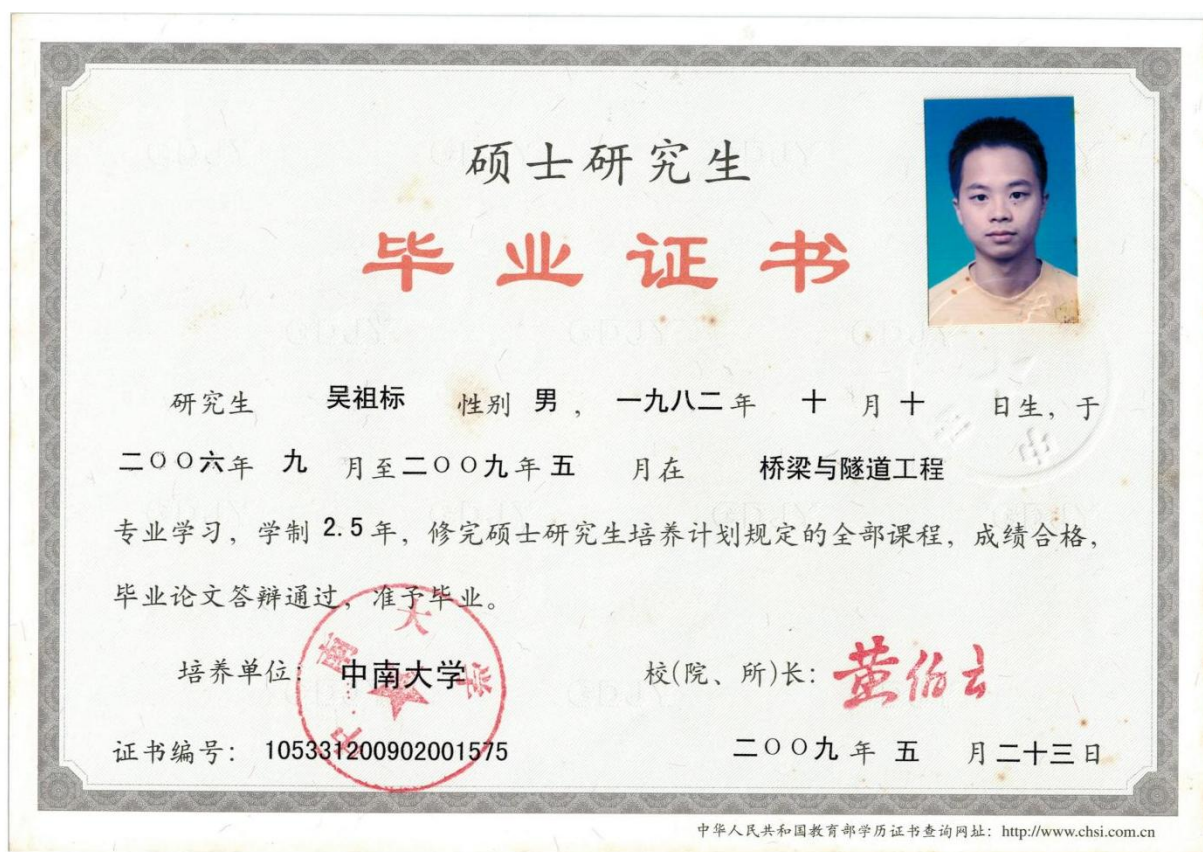 硕士研究生
毕业证书
研究生 吴祖标 性别 男 , 一九八二 年 十 月 十 日生, 于
二〇〇六年 九 月至 二〇〇九年 五 月在 桥梁与隧道工程
专业学习, 学制 2.5 年, 修完硕士研究生培养计划规定的全部课程, 成绩合格,
毕业论文答辩通过, 准予毕业。
培养单位: 中南大学 校(院、所)长: 黄伯云
中南大学
证书编号: 105331200902001575 二〇〇九 年 五 月 二十三 日
中华人民共和国教育部学历证书查询网址: http://www.chsi.com.cn